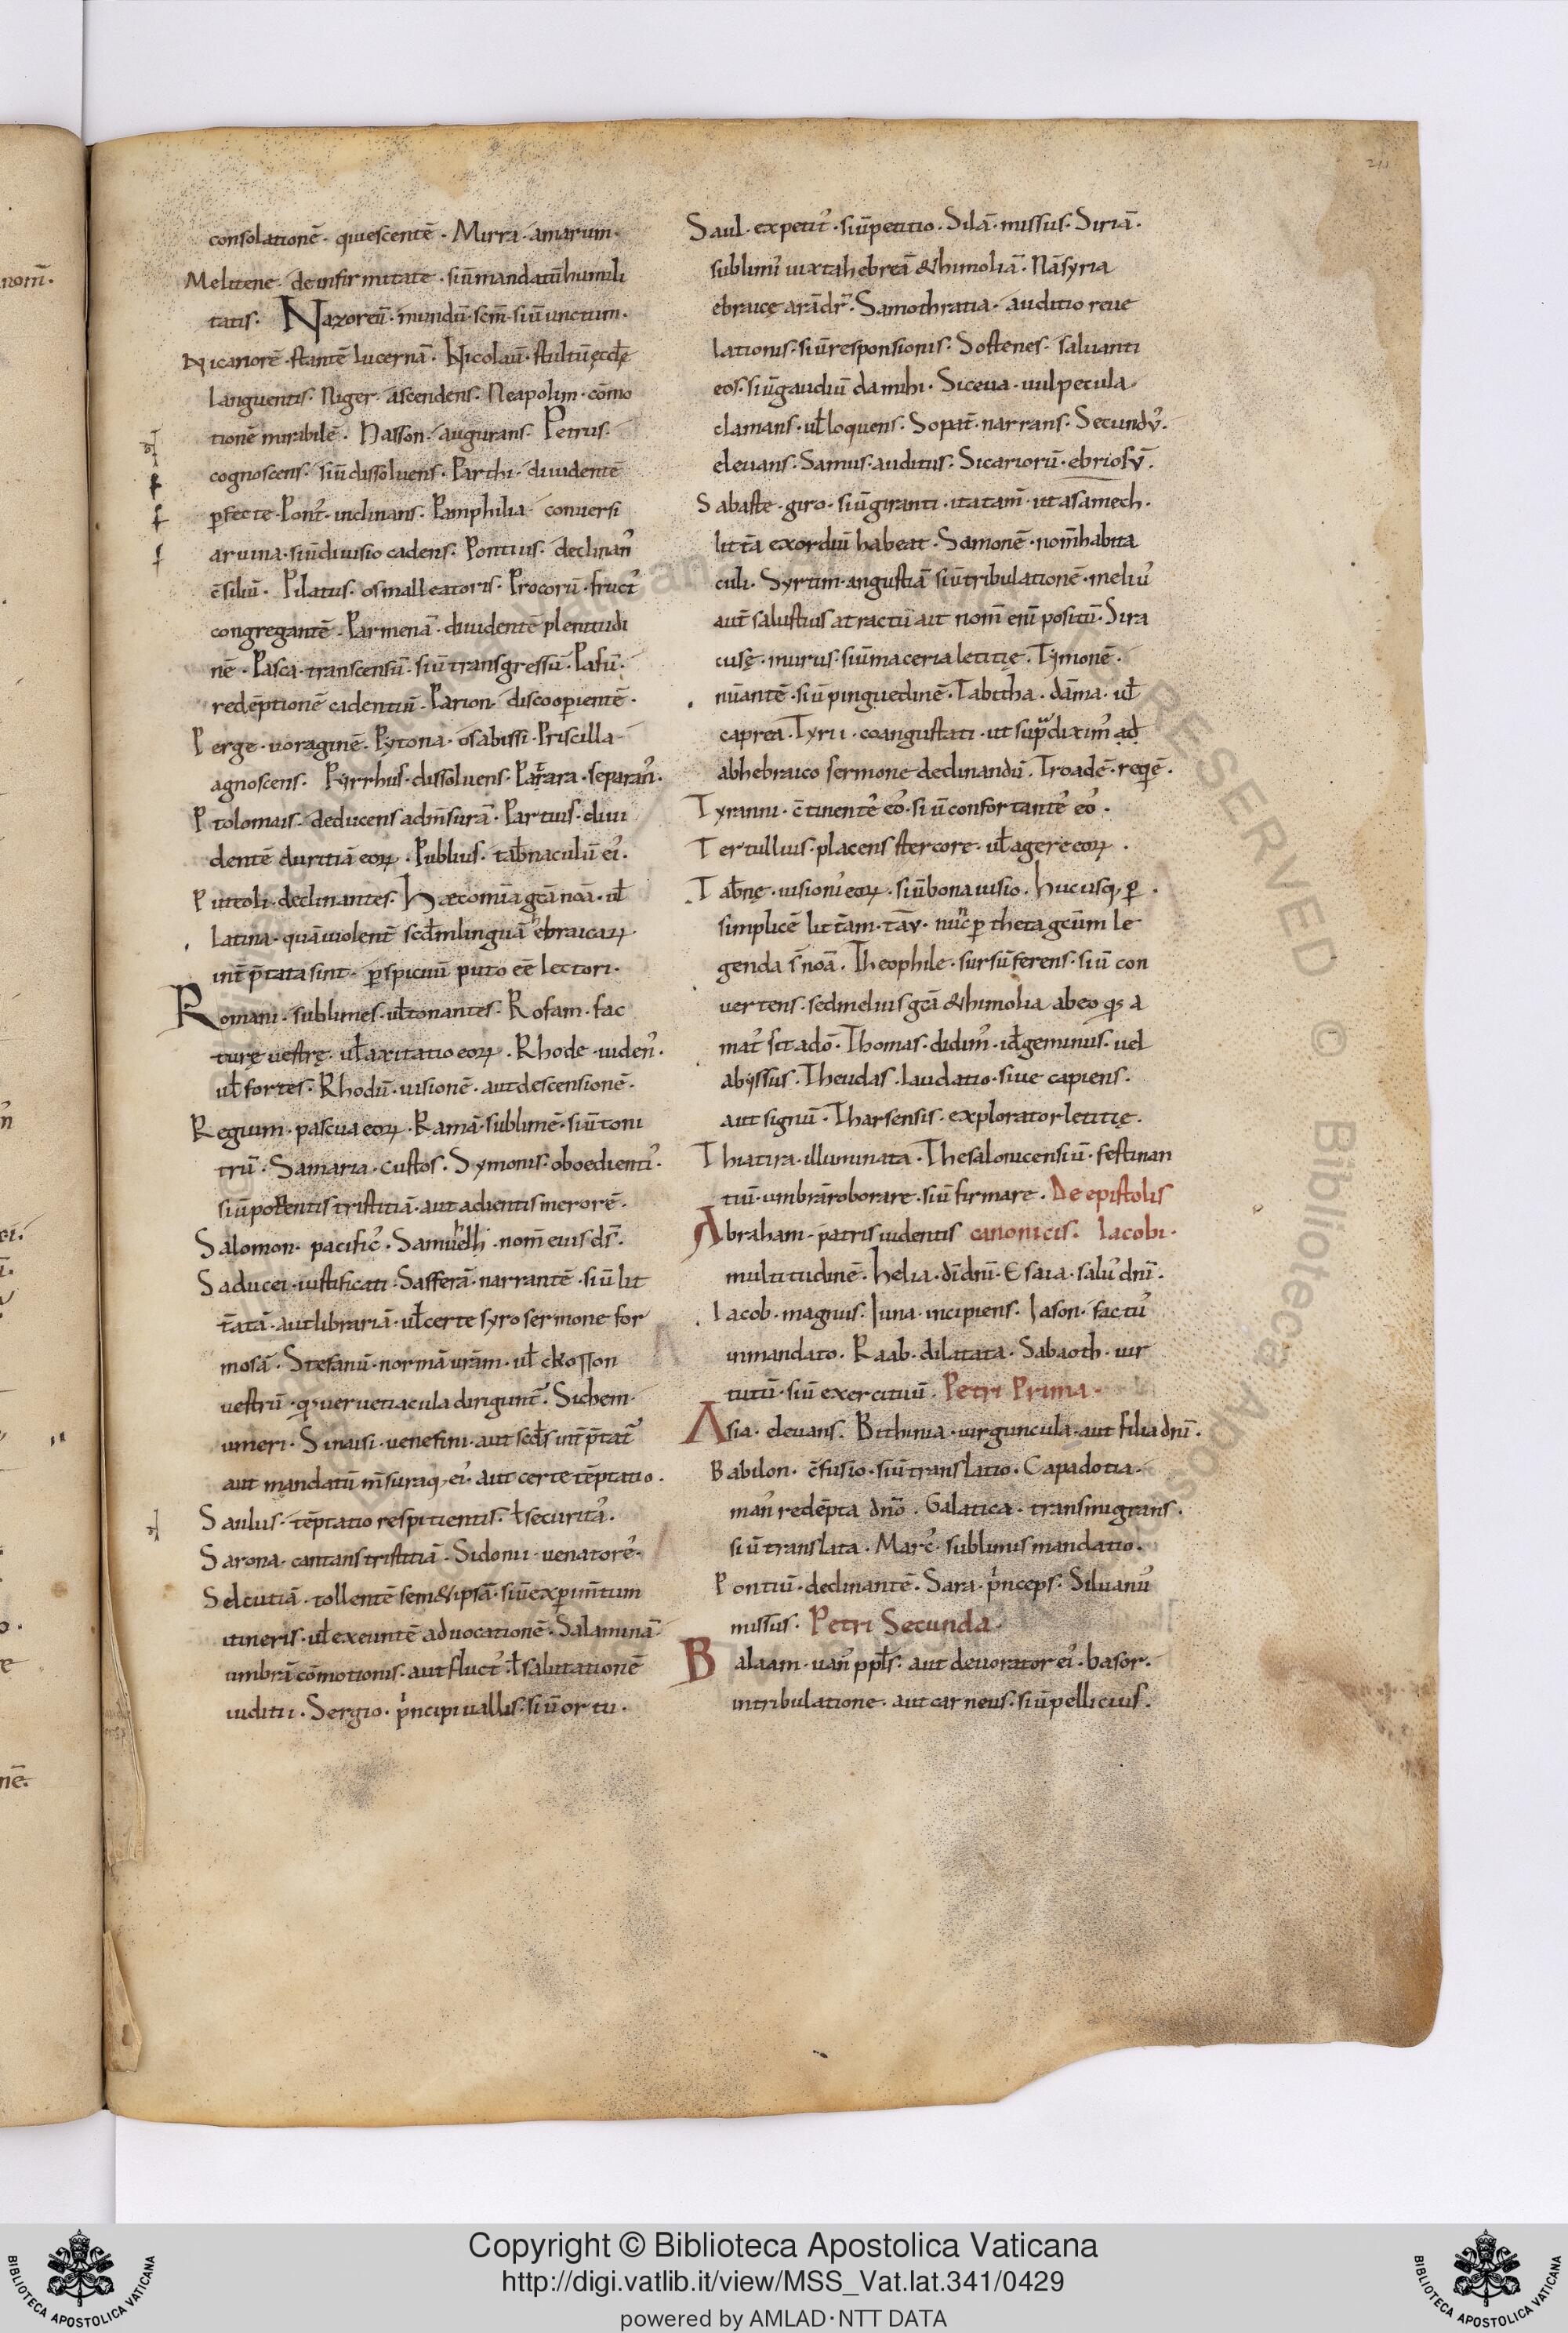 nom̄.
211
consolationē · quiescentē · Mirra · amarum ·
Melitene · de infirmitate · siū mandatū humili
tatis · Nazoreū · mundū · scm̄ · siū unctum ·
Nicanorē · stantē lucernā · Nicolaū · stultū ęcclę
languentis · Niger · ascendens · Neapolim · cōmo
tionē mirabilē · Nasson · augurans · Petrus ·
cognoscens · siū dissoluens · Parthi · diuidentē
ꝑfecte · Pont᾽ · inclinans · Pamphilia · conuersi
aruina · siū diuisio cadens · Pontius · declinan᾽
c̄siliū · Pilatus · os malleatoris · Procorū · fruct᾽
congregantē · Parmenā · diuidentē plenitudi
nē · Pasca · transcensū · siū transgressū · Pafū ·
redēptionē cadentiū · Parion · discooꝑientē ·
Perge · uoraginē · Pytona · os abissi · Priscilla
agnoscens · Pyrrhus · dissoluens · Patara · separan᾽ ·
Ptolomais · deducens ad m̄surā · Partus · diui
dentē duritiā eoꝝ · Publius · tab̄naculū ei᾽ ·
Puteoli · declinantes · Haec omīa gc̄a noā · ul̄
latina · quā uiolent̄ scd̄m linguā ebraicaꝝ ·
int̄p̄tata sint · ꝑspicuū puto eē lectori ·
Romani · sublimes · ul̄ tonantes · Rofam · fac
turę uestrę · ul̄ axitatio eoꝝ · Rhode · uiden᾽ ·
ul̄ fortes · Rhodū · uisionē · aut descensionē ·
Regium · pascua eoꝝ · Ramā · sublimē · siū toni
trū · Samaria · custos · Symonis · oboedienti᾽ ·
siū potentis tristitiā · aut adientis merorē ·
Salomon · pacific᾽ · Samuhelh · nom̄ eius ds̄ ·
Saducei · iustificati · Safferā · narrantē · siū lit
t̄atā · aut librariā · ul̄ certe syro sermone for
mosā · Stefanū · normā urām · ul̄ ckosson
uestrū · qͦ ueruetiacula dirigunt᷑ · Sichem ·
umeri · Sinaisi · uenefini · aut sed̄s int̄p̄tat᷑
aut mandatū m̄suraq; ei᾽ · aut certe tēptatio ·
Saulus · tēptatio respitientis · ł securita᾽ ·
Sarona · cantans tristitiā · Sidonii · uenatore᾽ ·
Seleutiā · tollentē sem&ipsā · siū exꝑim̄tum
itineris · ul̄ exeuntē aduocationē · Salaminā
umbrā cōmotionis · aut fluct᾽ · ł salutationē
iuditii · Sergio · p̍ncipi uallis · siū ortu ·
Saul · expetit᾽ · siū petitio · Silā · missus · Siriā ·
sublimi᾽ iuxta hebreā & himoliā · Nā syria
ebraicę arā dr̄ · Samothratia · auditio reue
lationis · siū responsionis · Sostenes · saluanti
eos · siū gaudiū da mihi · Siceua · uulpecula
clamans · ul̄ loquens · Sopat̄ · narrans · Secundꝰ ·
eleuans · Samus · auditus · Sicariorū · ebriosꝰ ·
Sabaste · giro · siū giranti · ita tam̄ · ut a samech ·
litt̄a exordiū habeat · Samonē · nom̄ habita
culi · Syrtim · angustiā siū tribulationē · meliu᾽
aut̄ salustius a tractū ait nom̄ eni᾽ positū · Sira
cusę · murus · siū maceria letitię · Tymonē ·
nūantē · siū pinguedinē · Tabitha · dāma · ul̄
caprea · Tyrii · coangustati · ut supᷓ dixim᾽ ad
ab hebraico sermone declinandū · Troadē · reqͥē ·
Tyranni · c̄tinente᾽ eo᾽ · siū confortante᾽ eo᾽ ·
Tertullius · placens stercore · ul̄ agere eoꝝ ·
Tab̄nę · uisioni᾽ eoꝝ · siū bona uisio · Hucusq; ꝑ
simplicē litt̄am · tāv · nuc̄ ꝑ theta gcūm le
genda s̄ noā · Theophile · sursū ferens · siū con
uertens · sed melius gc̄a & himolia ab eo qͦ a
mat᾽ sit a dō · Thomas · didim᾽ · id̄ geminus · uel
abyssus · Theudas · laudatio · siue capiens ·
aut signū · Tharsensis · explorator letitię ·
Thiatira · illuminata · Thesalonicensiū · festinan
tiū · umbrā roborare · siū firmare · De epistolis
Abraham · patris uidentis canonicis · Iacobi ·
multitudinē · Helia · dī dni᷑ · Esaia · salu᾽ dni᷑ ·
Iacob · magnus · Iuna · incipiens · Iason · factu᾽
in mandato · Raab · dilatata · Sabaoth · uir
tutū · siū exercituū · Petri Prima ·
Asia · eleuans · Bithinia · uirguncula · aut filia dni᷑ ·
Babilon · c̄fusio · siū translatio · Capadotia ·
man᾽ redēpta dn̄o · Galatica · transmigrans ·
siū translata · Marc᾽ · sublimis mandatio ·
Pontiū · declinantē · Sara · p̍nceps · Siluanu᾽
missus · Petri Secunda ·
Balaam · uan᾽ ppl̄s · aut deuorator ei᾽ · basor ·
in tribulatione · aut carneus · siū pellicius ·
Copyright © Biblioteca Apostolica Vaticana
http://digi.vatlib.it/view/MSS_Vat.lat.341/0429
powered by AMLAD·NTT DATA
BIBLIOTECA APOSTOLICA VATICANA
BIBLIOTECA APOSTOLICA VATICANA